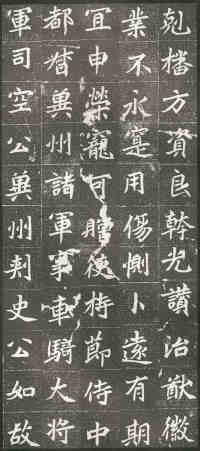 尅播方資良幹光讚治猷徽
業不永寔用傷惻卜遠有期
宜申榮寵可贈使持節侍中
都督冀州諸軍事車騎大將
軍司空公冀州刺史公如故